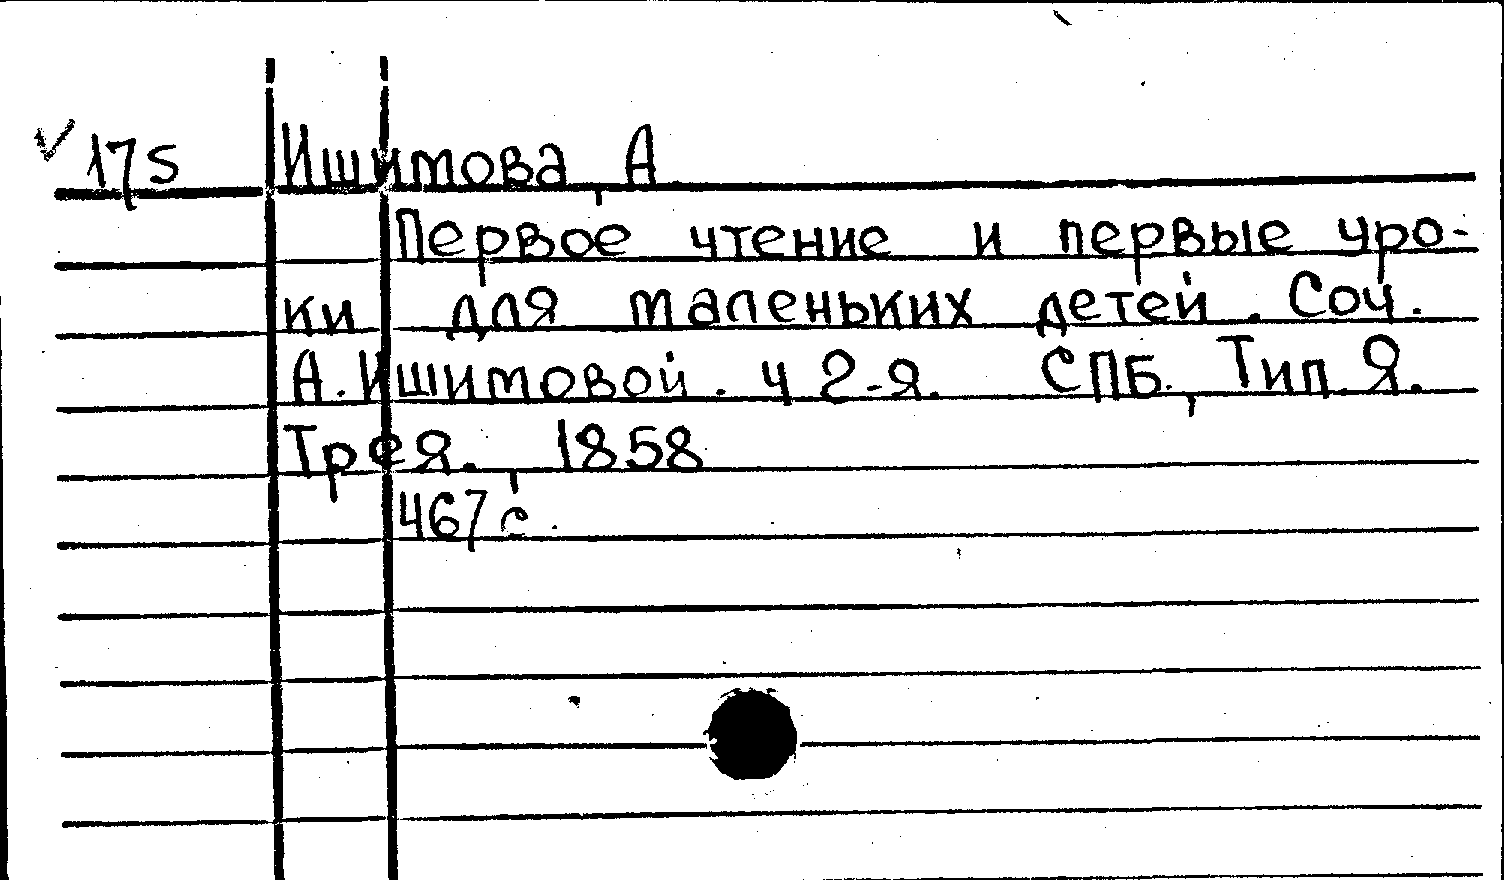 ✓ 175 Ишимова, А
Первое чтение и первые уро-
ки для маленьких детей. Соч.
А. Ишимовой. ч 2-я. СПБ., Тип. Я.
Трея., 1858
467 с.